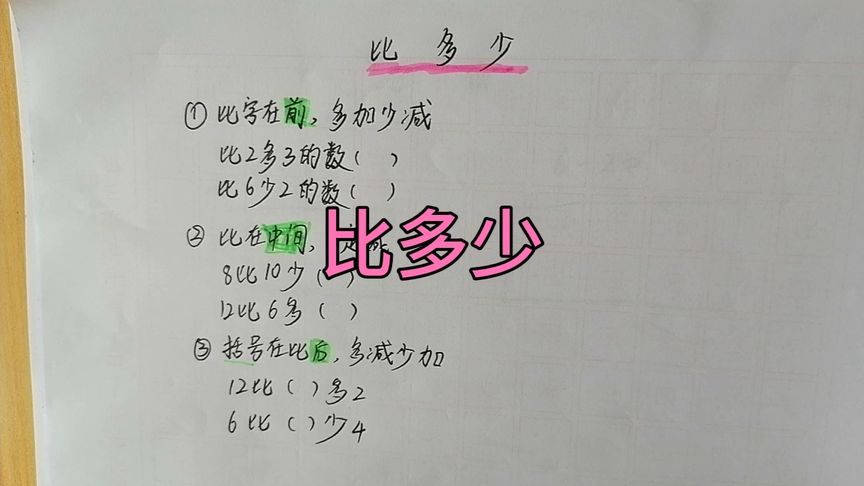 比多少
① 比字在前，多加少减
比2多3的数（ ）
比6少2的数（ ）
② 比在中间，
比多少
8比10少（ ）
12比6多（ ）
③ 括号在比后，多减少加
12比（ ）多2
6比（ ）少4